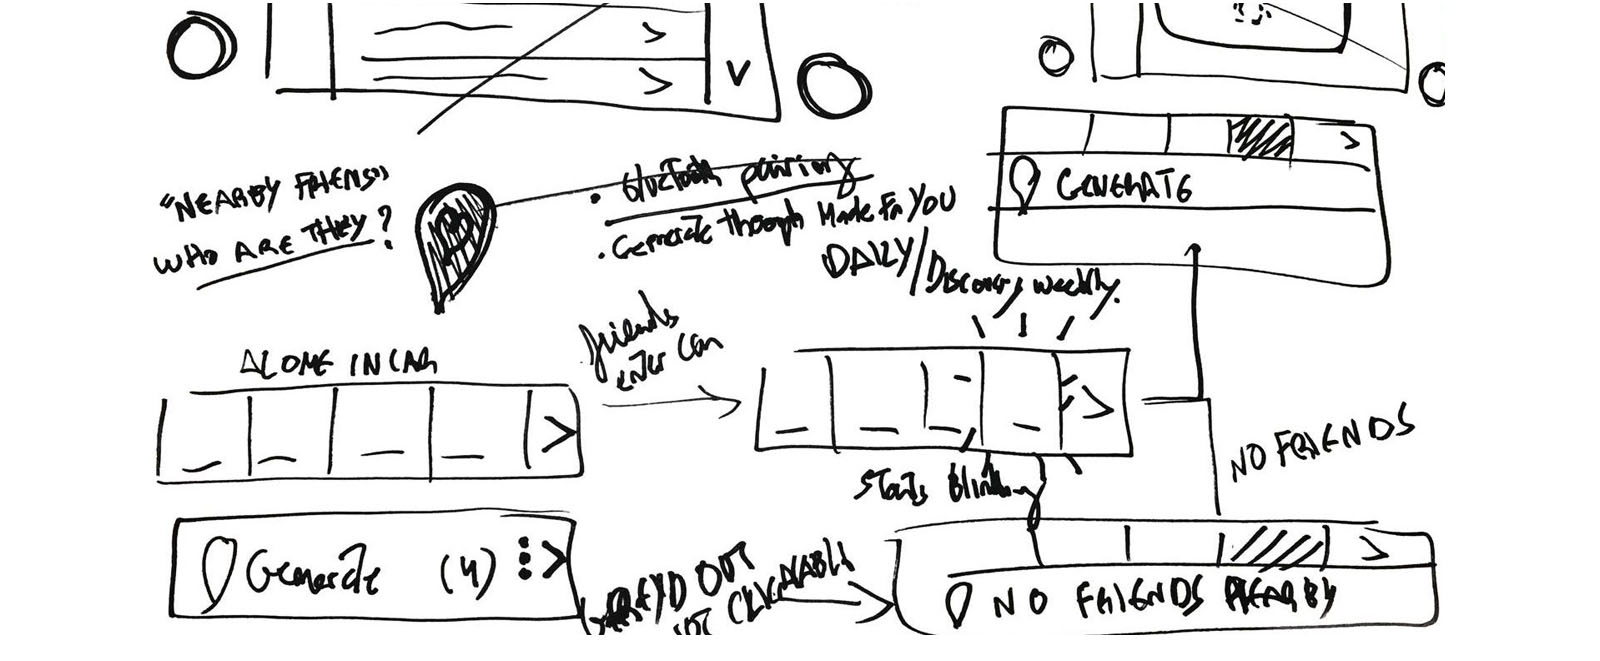 "NEARBY FRIENS"
WHO ARE THEY?
• Bluetooth pairing
• Generate through Made For YOU
DAILY/Discovery weekly.
GENERATE
ALONE IN CAR
friends
enter car
starts Blinking
NO FRIENDS
Generate (4)
GREYD OUT
NOT CLICKABLE
NO FRIENDS NEARBY